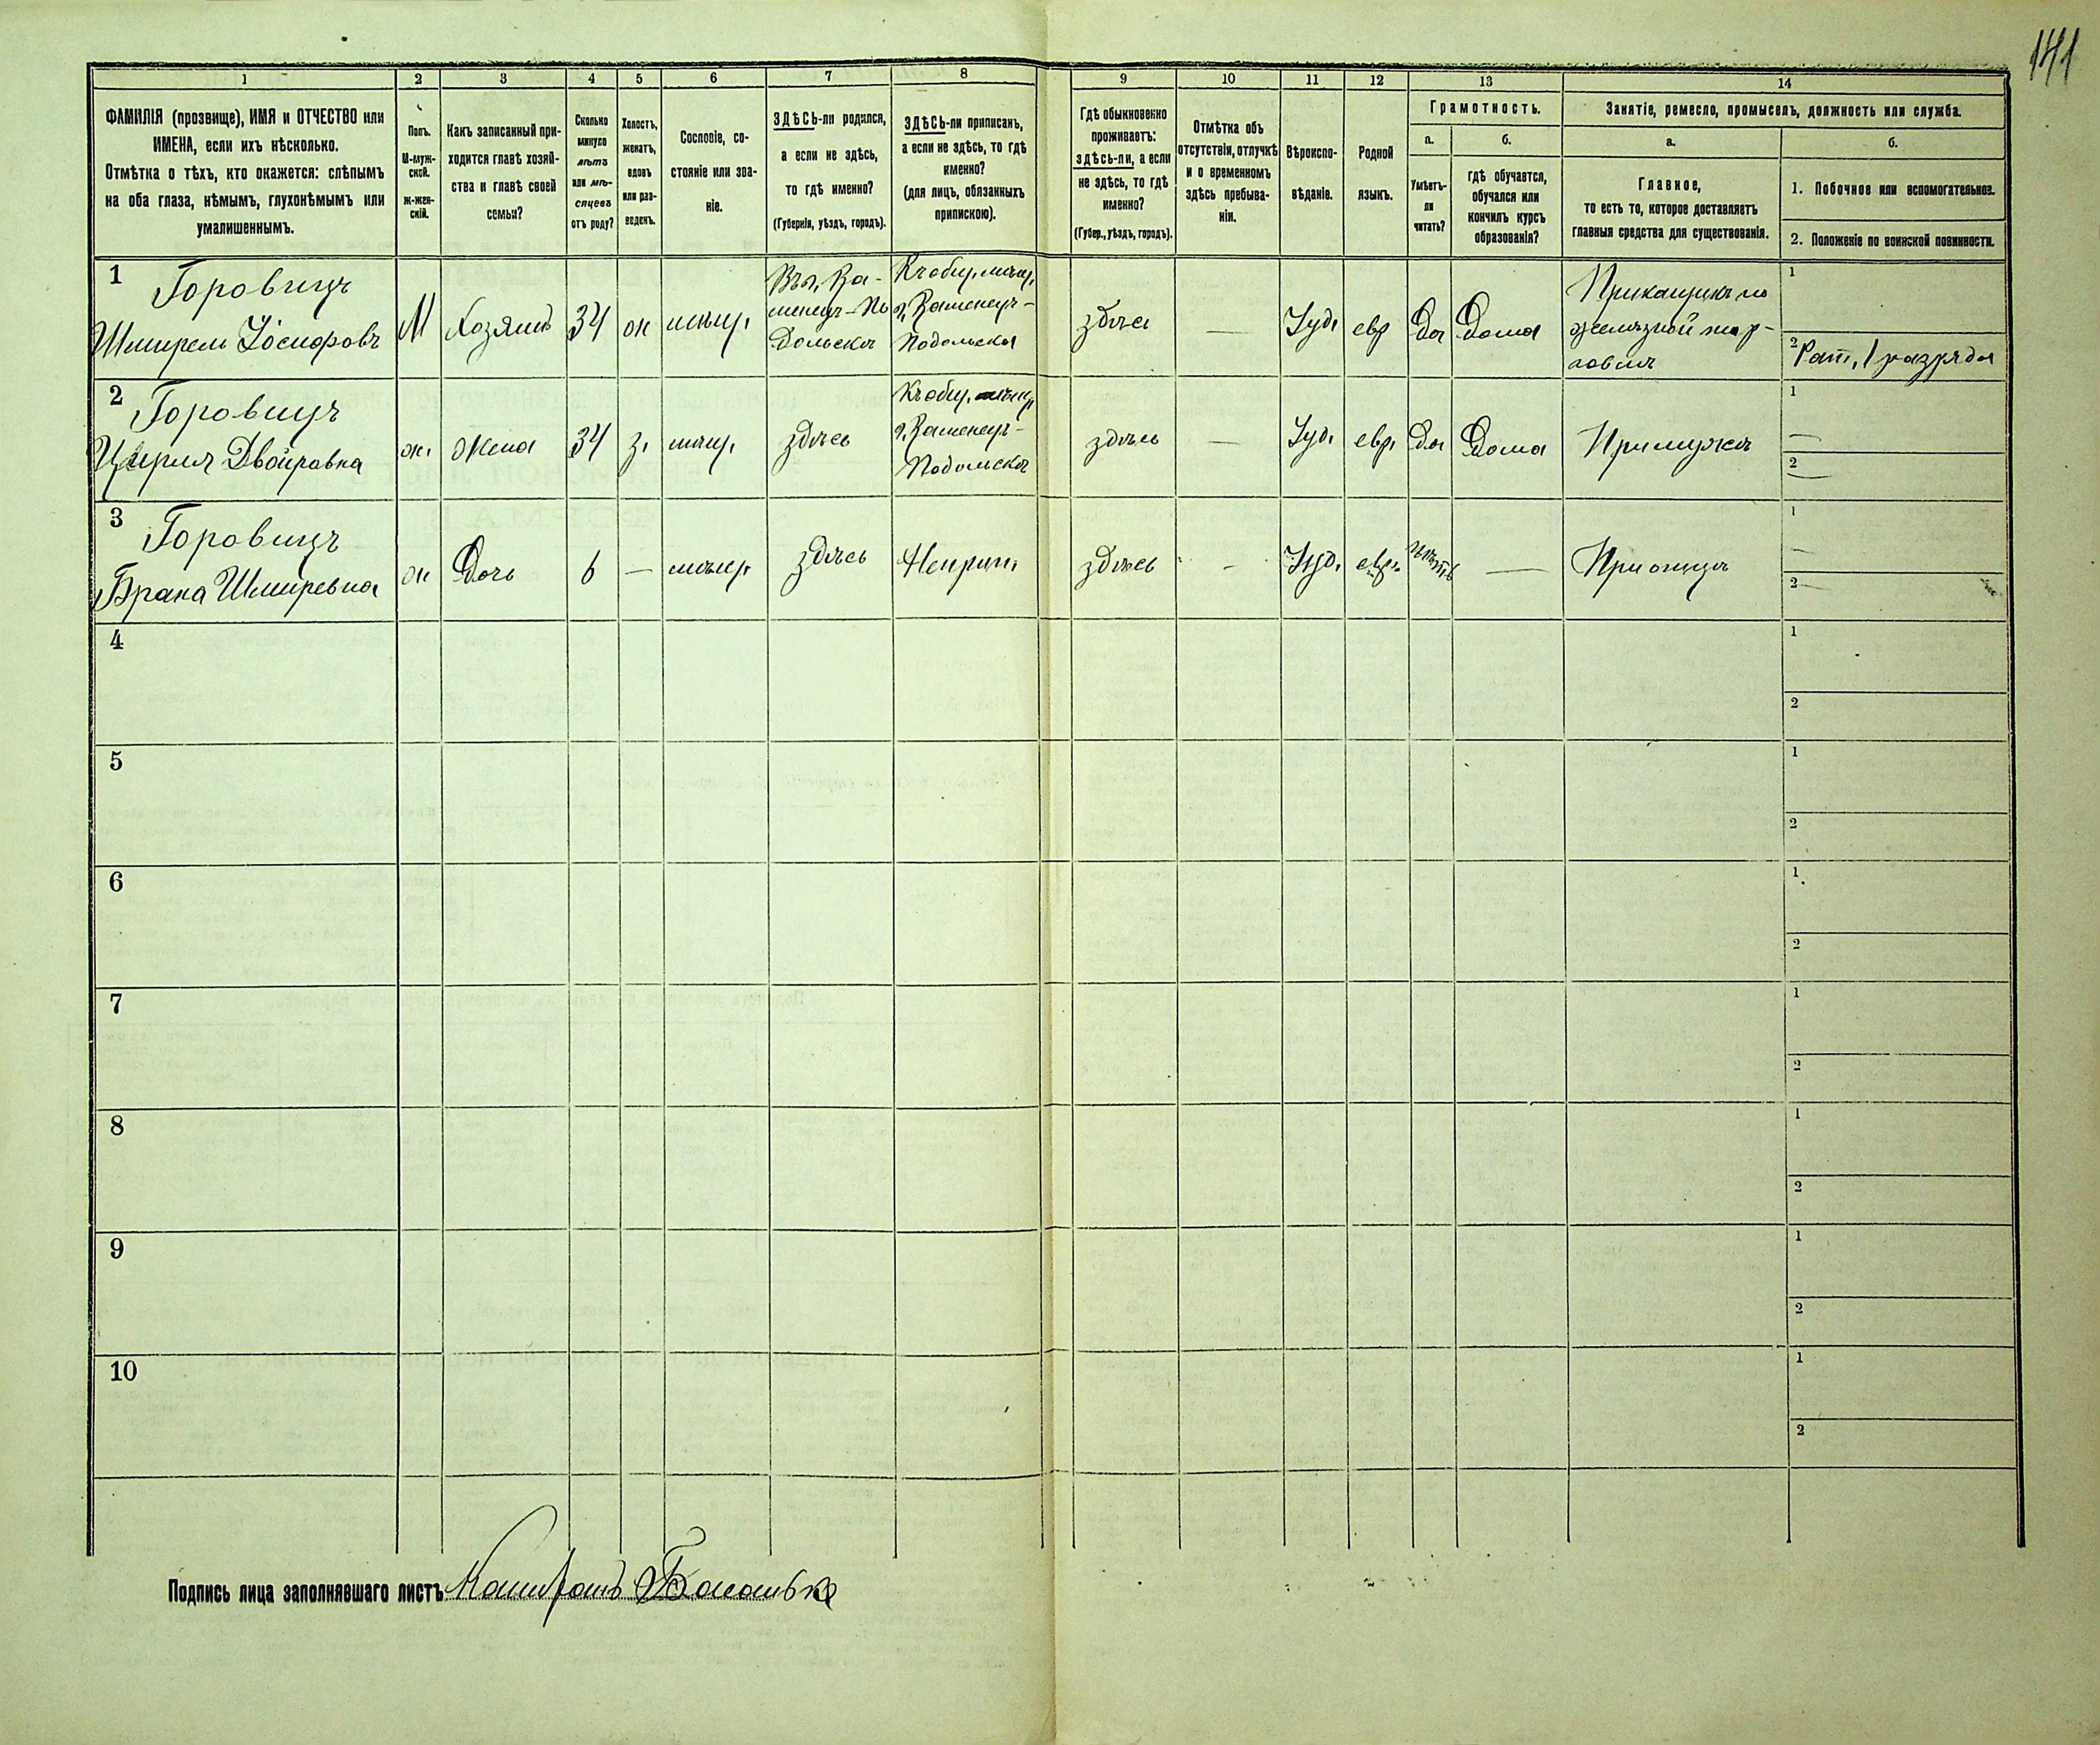 141
1 2 3 4 5 6 7 8 9 10 11 12 13 14
ФАМИЛІЯ (прозвище), ИМЯ и ОТЧЕСТВО или
ИМЕНА, если ихъ нѣсколько.
Отмѣтка о тѣхъ, кто окажется: слѣпымъ
на оба глаза, нѣмымъ, глухонѣмымъ или
умалишеннымъ.
Полъ.
М-муж-
ской.
Ж-жен-
скій.
Какъ записанный при-
ходится главѣ хозяй-
ства и главѣ своей
семьи?
Сколько
минуло
лѣтъ
или мѣ-
сяцевъ
отъ роду?
Холостъ,
женатъ,
вдовъ
или раз-
веденъ.
Сословіе, со-
стояніе или зва-
ніе.
ЗДѢСЬ-ли родился,
а если не здѣсь,
то гдѣ именно?
(Губернія, уѣздъ, городъ).
ЗДѢСЬ-ли приписанъ,
а если не здѣсь, то гдѣ
именно?
(для лицъ, обязанныхъ
припискою).
Гдѣ обыкновенно
проживаетъ:
здѣсь-ли, а если
не здѣсь, то гдѣ
именно?
(Губер., уѣздъ, городъ).
Отмѣтка объ
отсутствіи, отлучкѣ
и о временномъ
здѣсь пребыва-
ніи.
Вѣроиспо-
вѣданіе.
Родной
языкъ.
Грамотность.
а.
Умѣетъ-
ли
читать?
б.
гдѣ обучается,
обучался или
кончилъ курсъ
образованія?
Занятіе, ремесло, промыселъ, должность или служба.
а.
Главное,
то есть то, которое доставляетъ
главныя средства для существованія.
б.
1. Побочное или вспомогательное.
2. Положеніе по воинской повинности.
1
Горовицъ
Шмирель Іосифовъ
М
Хозяинъ
34
ж
мѣщ.
Въ г. Ка-
менец-По
дольскѣ
Къ общ. мѣщ.
г. Каменец-
Подольска
здѣсь
—
Іуд.
евр
Да
Дома
Прикащикъ по
желѣзной тор-
говлѣ
1
2 Рат. 1 разряда
2
Горовицъ
Двойровна
ж.
Жена
34
з.
мѣщ.
здѣсь
Къ общ. мѣщ.
г. Каменец-
Подольска
здѣсь
—
Іуд.
евр.
Да
Дома
При мужѣ
1 —
2 —
3
Горовицъ
Брана Шмиревна
ж
Дочь
6
—
мѣщ.
здѣсь
Неприп.
здѣсь
-
Іуд.
евр.
нѣтъ
—
При отцѣ
1 —
2 —
4
1
2
5
1
2
6
1
2
7
1
2
8
1
2
9
1
2
10
1
2
Подпись лица заполнявшаго листъ